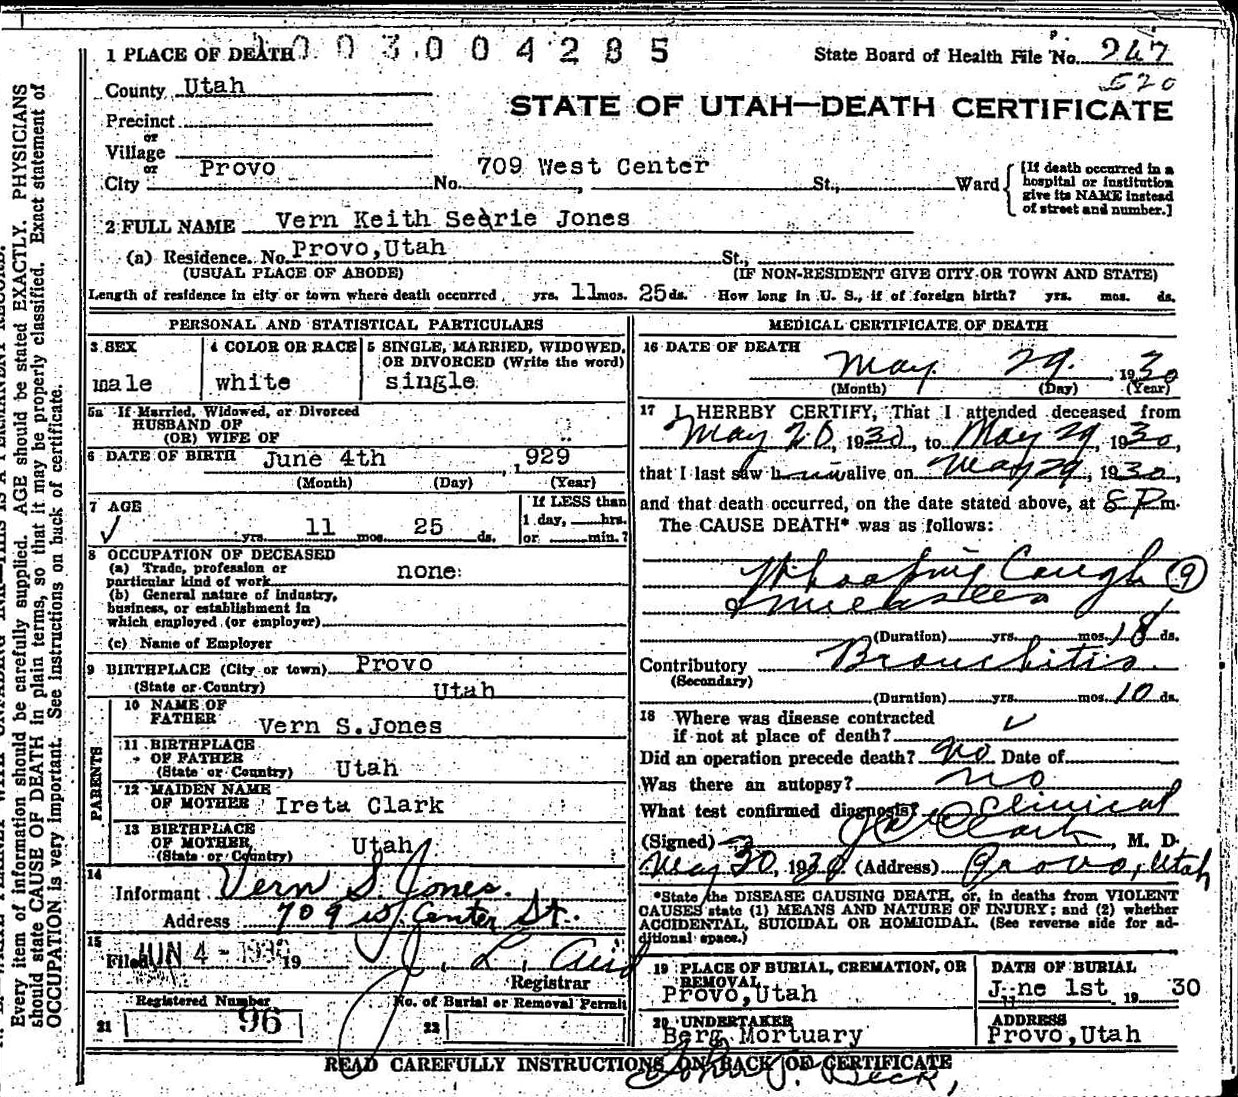 1 PLACE OF DEATH 1003004285 State Board of Health File No. 247
County Utah 520
STATE OF UTAH—DEATH CERTIFICATE
Precinct
or
Village
or
City Provo No. 709 West Center St., Ward
[If death occurred in a
hospital or institution
give its NAME instead
of street and number.]
2 FULL NAME Vern Keith Searie Jones
(a) Residence. No. Provo, Utah St.,
(USUAL PLACE OF ABODE) (IF NON-RESIDENT GIVE CITY OR TOWN AND STATE)
Length of residence in city or town where death occurred yrs. 11 mos. 25 ds. How long in U. S., if of foreign birth? yrs. mos. ds.
PERSONAL AND STATISTICAL PARTICULARS
3 SEX
male
4 COLOR OR RACE
white
5 SINGLE, MARRIED, WIDOWED,
OR DIVORCED (Write the word)
single
5a If Married, Widowed, or Divorced
HUSBAND OF
(OR) WIFE OF
6 DATE OF BIRTH June 4th, 1929
(Month) (Day) (Year)
7 AGE
✓ yrs. 11 mos. 25 ds.
If LESS than
1 day, hrs.
or min.?
8 OCCUPATION OF DECEASED
(a) Trade, profession or
particular kind of work none
(b) General nature of industry,
business, or establishment in
which employed (or employer)
(c) Name of Employer
9 BIRTHPLACE (City or town) Provo
(State or Country) Utah
PARENTS
10 NAME OF
FATHER Vern S. Jones
11 BIRTHPLACE
OF FATHER
(State or Country) Utah
12 MAIDEN NAME
OF MOTHER Ireta Clark
13 BIRTHPLACE
OF MOTHER
(State or Country) Utah
14
Informant Vern S. Jones.
Address 709 W. Center St.
15
Filed JUN 4 - 1930 19 J. L. Aird
Registrar
Registered Number No. of Burial or Removal Permit
21 96 22
MEDICAL CERTIFICATE OF DEATH
16 DATE OF DEATH
May 29, 1930
(Month) (Day) (Year)
17 I HEREBY CERTIFY, That I attended deceased from
May 20, 1930, to May 29, 1930,
that I last saw him alive on May 29, 1930,
and that death occurred, on the date stated above, at 8 P m.
The CAUSE DEATH* was as follows:
Whooping Cough 9
& measles
(Duration) yrs. mos. 18 ds.
Contributory Bronchitis
(Secondary)
(Duration) yrs. mos. 10 ds.
18 Where was disease contracted
if not at place of death? ✓
Did an operation precede death? no Date of
Was there an autopsy? no
What test confirmed diagnosis? Clinical
(Signed) Clark, M. D.
May 30, 1930 (Address) Provo, Utah
*State the DISEASE CAUSING DEATH, or, in deaths from VIOLENT
CAUSES state (1) MEANS AND NATURE OF INJURY; and (2) whether
ACCIDENTAL, SUICIDAL OR HOMICIDAL. (See reverse side for ad-
ditional space.)
19 PLACE OF BURIAL, CREMATION, OR
REMOVAL
Provo, Utah
DATE OF BURIAL
June 1st 1930
20 UNDERTAKER
Berg Mortuary
ADDRESS
Provo, Utah
READ CAREFULLY INSTRUCTIONS ON BACK OF CERTIFICATE
John J. Beck,
Every item of information should be carefully supplied. AGE should be stated EXACTLY. PHYSICIANS
should state CAUSE OF DEATH in plain terms, so that it may be properly classified. Exact statement of
OCCUPATION is very important. See instructions on back of certificate.